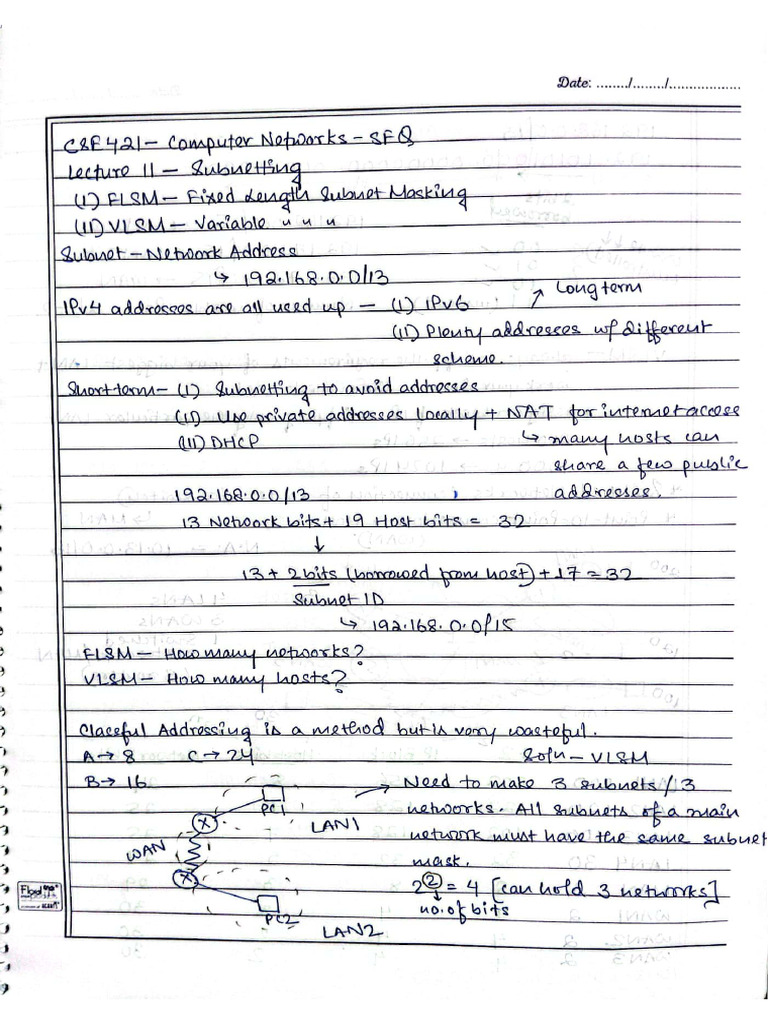 Date: ......../......../..................
CSE421 – Computer Networks – SFQ
Lecture 11 – Subnetting
(I) FLSM – Fixed Length Subnet Masking
(II) VLSM – Variable " " "
Subnet – Network Address
↳ 192.168.0.0/13
IPv4 addresses are all used up – (I) IPv6 ↗ Long term
(II) Plenty addresses w/ different
scheme.
Short term – (I) Subnetting to avoid addresses
(II) Use private addresses locally + NAT for internet access
(III) DHCP ↳ many hosts can
share a few public
192.168.0.0/13 addresses.
13 Network bits + 19 Host bits = 32
↓
13 + 2 bits (borrowed from host) + 17 = 32
Subnet ID
↳ 192.168.0.0/15
FLSM – How many networks?
VLSM – How many hosts?
Classful Addressing is a method but is very wasteful.
A → 8 C → 24 Soln – VLSM
B → 16 → Need to make 3 subnets/3
PC1 networks. All subnets of a main
LAN1 network must have the same subnet
WAN mask.
2② = 4 [can hold 3 networks]
PC2 no. of bits
LAN2